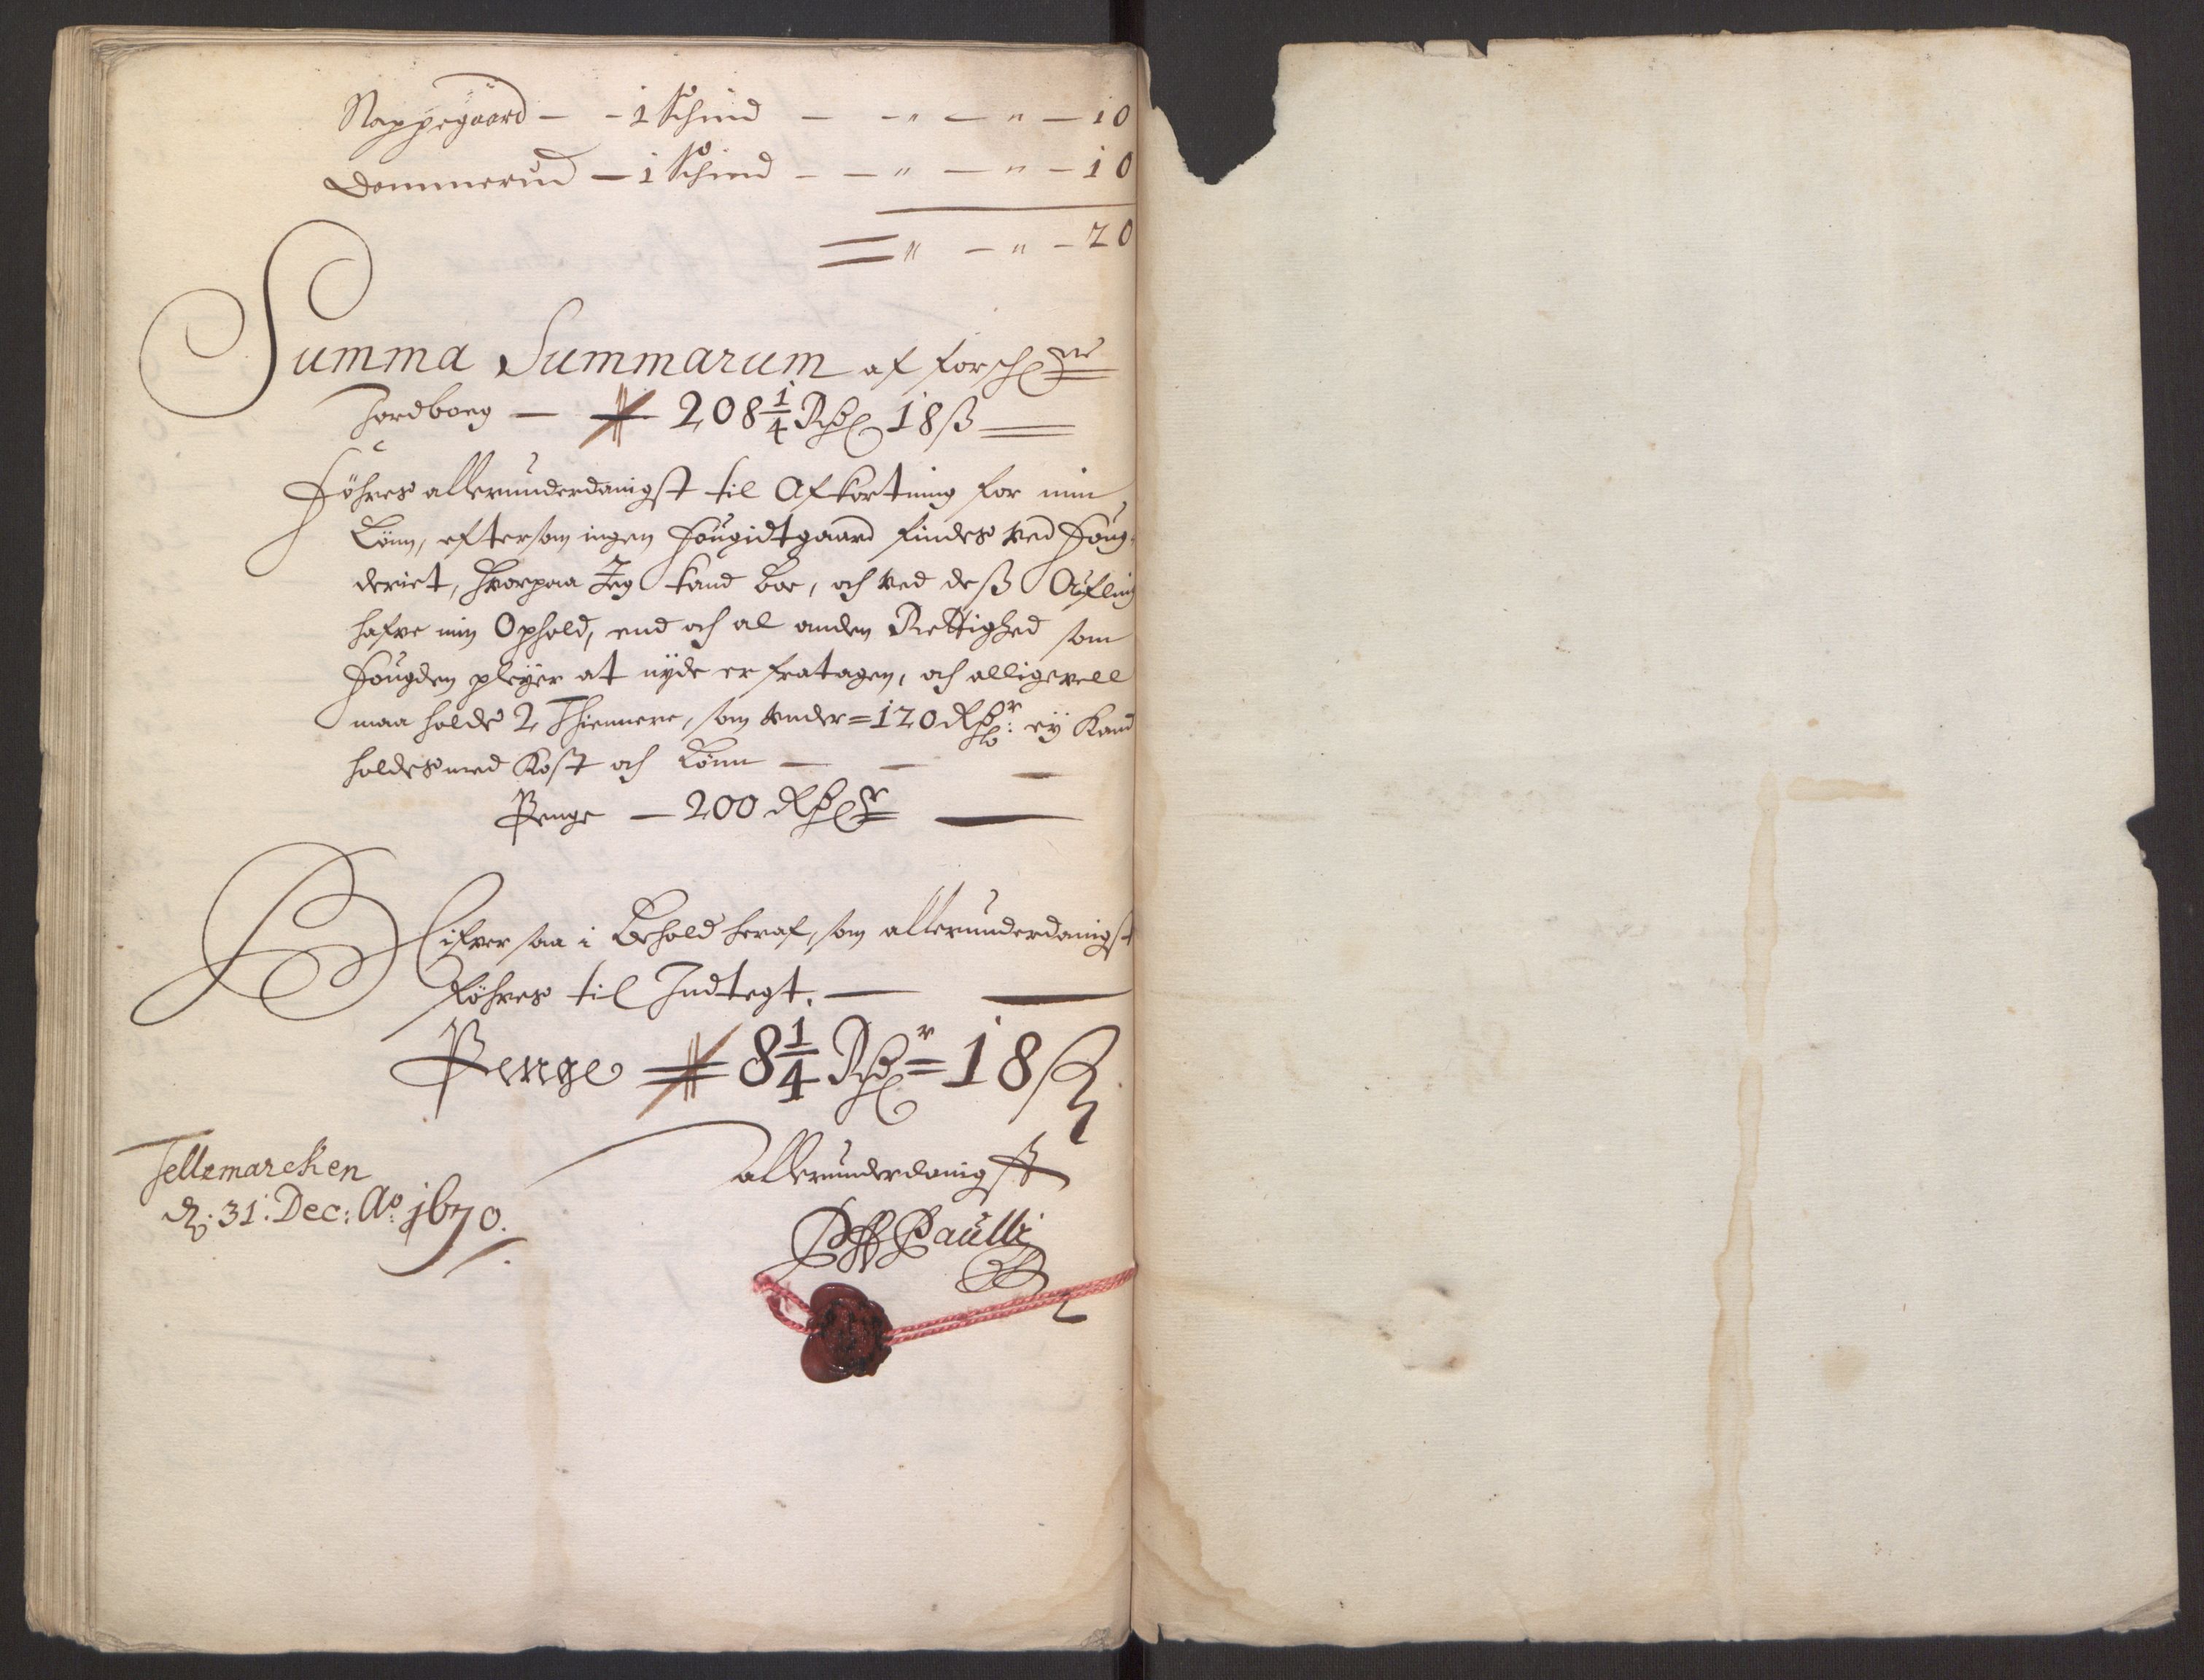 Nappegaard – – 1 Schind – – " – " – 10
Dommerud – 1 Schind – – " – " – 10
= " – " – 20
Summa Summarum af forsch:ne
Jordbog — 208 1/4 Rdr 18 ß
Föhres allerunderdanigst til Afkortning for min
Lönn, eftersom ingen Fougidtgaard findes ved Foug-
deriet, hvorpaa Jeg kand boe, och ved deß Aufling
hafve min Ophold, end och al anden Rettighed som
Fougden pleyer at nyde er fratagen, och alligevell
maa holde 2 Thiennere, som under = 120 Rdr: ey Kand
holdes med Kost och Lönn —
Penge — 200 Rdr
Blifver saa i Behold heraf, som allerunderdanigst
föhres til Indtegt. —
Penge 8 1/4 Rdr = 18 ß
Tellemarcken
d. 31: Dec: Ao 1670.
allerunderdanigst
Paulli